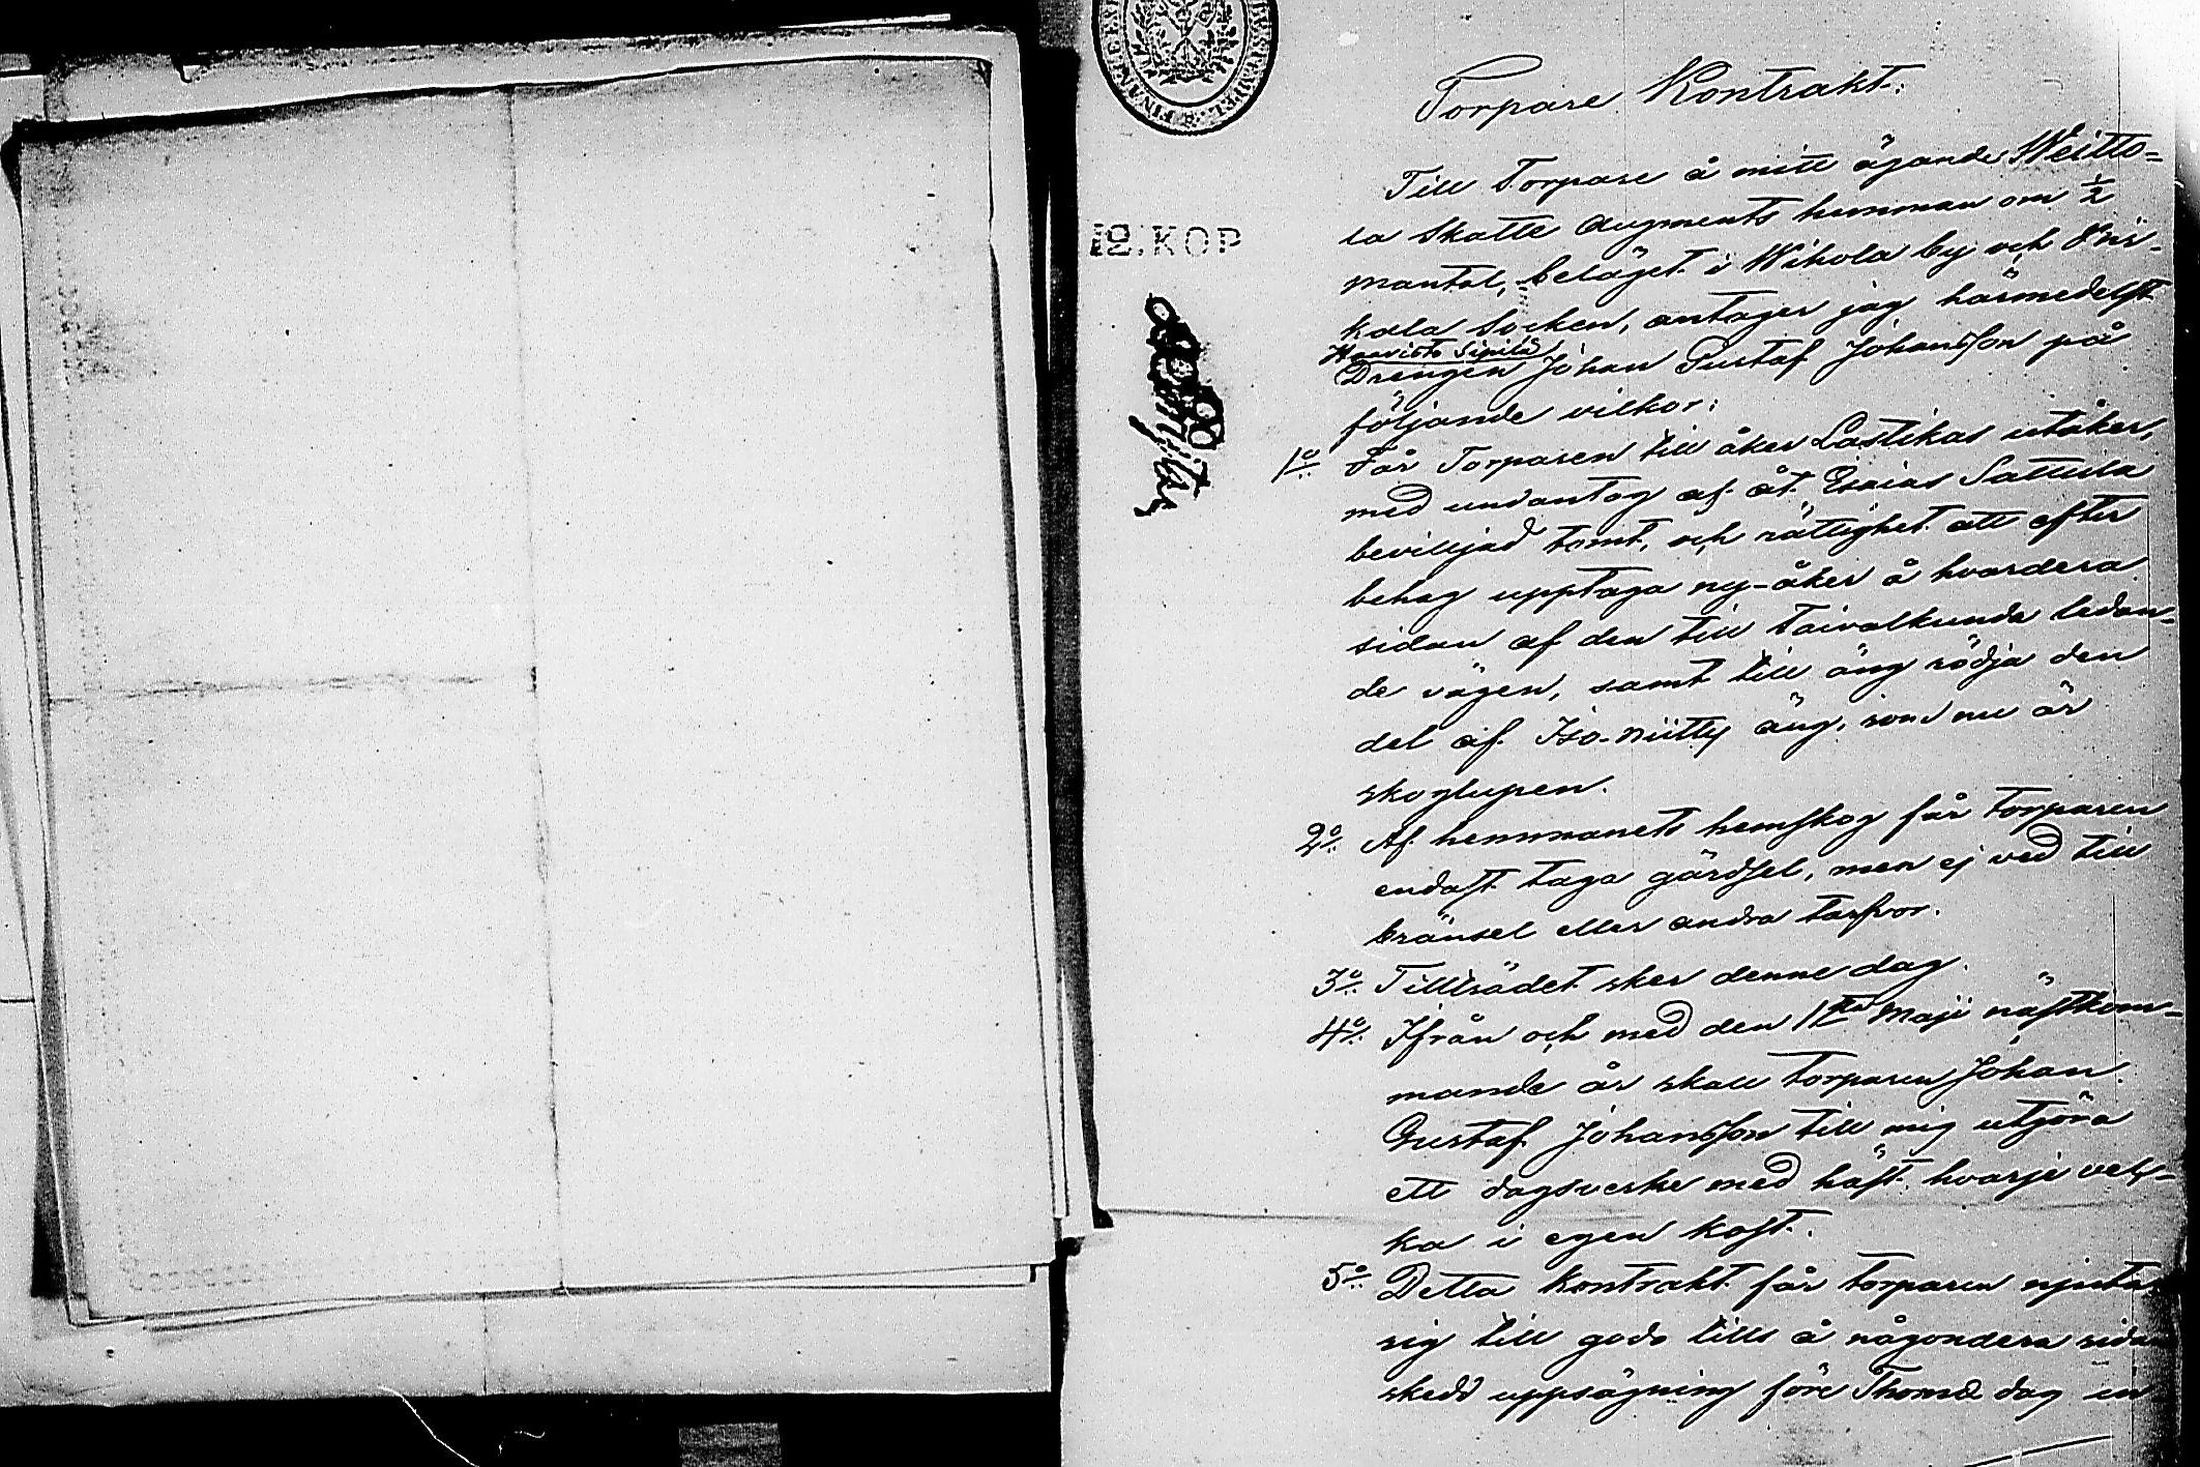 Torpare Kontrakt.
Till Torpare å mitt ägande Weitto-
la Skatte Augments hemman om 1/2
mantal, beläget i Wihola by och Pris-
kala Socken, antager jag härmedelst
Haavisto Sipilä
Drengen Johan Gustaf Johansson på
följande vilkor:
1o Får Torparen till åker Lastikas utåker,
med undantag af åt Esaias Sattula
beviljad tomt, och rättighet att efter
behag upptaga ny-åker å hvardera
sidan af den till Taivalkunda ledan-
de vägen, samt till äng rödja den
del af Iso-niitty äng, som nu är
skoglupen.
2o Af hemmanets hemskog får Torparen
endast taga gärdsel, men ej ved till
bränsel eller andra tarfvor.
3o Tillträdet sker denne dag.
4o Ifrån och med den 1sta Maji nästkom-
mande år skall torparen Johan
Gustaf Johansson till mig utgöra
ett dagsverke med häst hvarje vec-
ka i egen kost.
5o Detta kontrakt får torparen njuta
sig till godo tills å någondera sidan
skedd uppsägning före Thomæ dag in
10.KOP